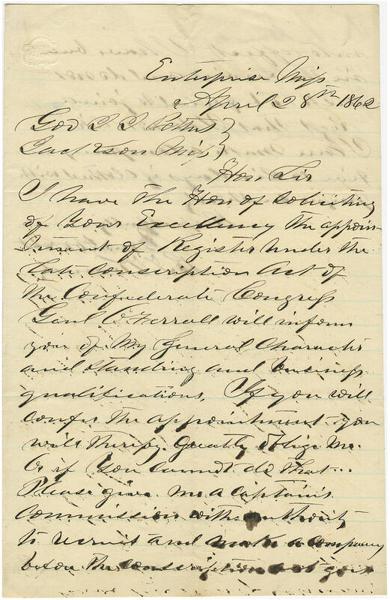 Enterprise Miss
April 28th 1862
Gov J J Pettus
Jackson Miss
Hon Sir
I have the Hon of Soliciting
of your Excellency the appoin
tment of Register under the
late Conscription Act of
the Confederate Congress
Genl O'Ferrall will inform
you of my General Character
and standing and business
qualifications. If you will
confer the appointment you
will thereby Greatly oblige me.
Or if you cannot do that
Please give me a Captains
Commission with authority
to recruit and make a company
before the conscription act goes